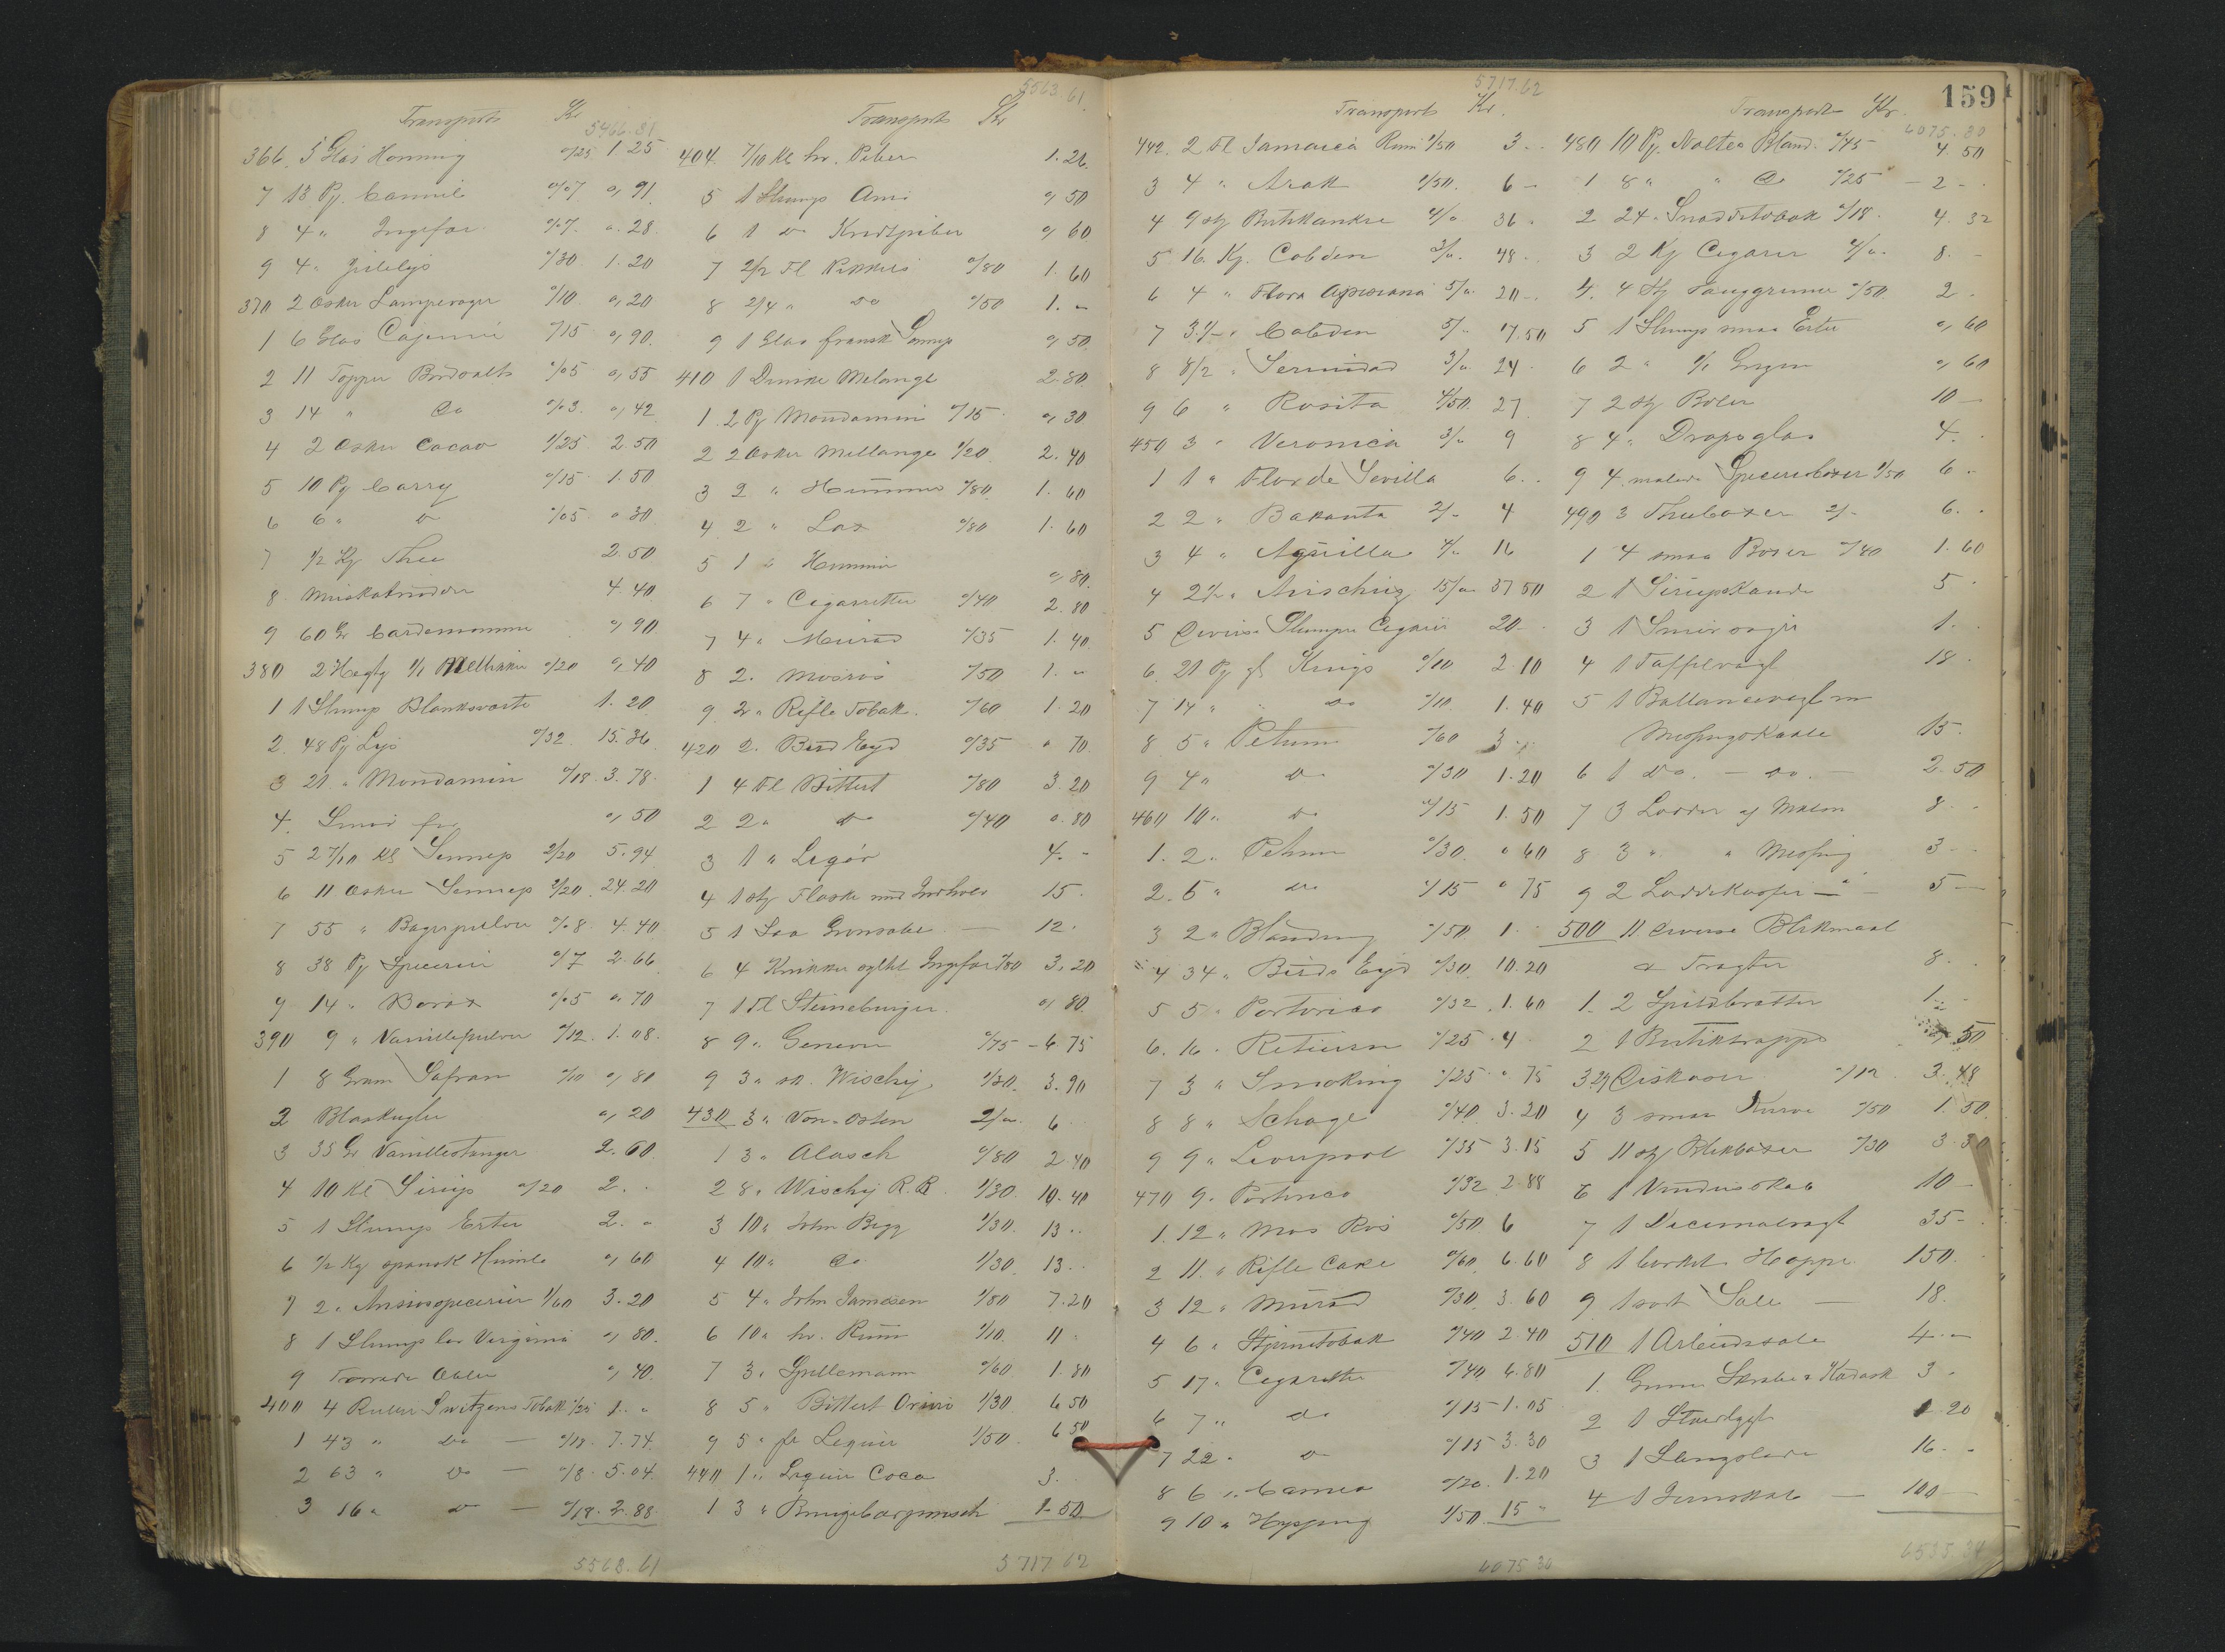 Transports Kr
5466.81
366. 5 Glas Honning o/25 1.25
7 13 Pg. Cannel o/07 0,91
8 4 " Ingefær o/07. 0.28
9 4 " Julelys o/30 1.20
370 2 Æsker Lampevæger o/10 0,20
1 6 Glas Cajenne o/15 0,90.
2 11 Topper Bordsalt o/05 0,55
3 14 " Do o/03. 0,42
4 2 Æsker Cacao 1/25 2.50
5 10 Pg Carry o/15 1.50
6 6 " Do o/05 0.30
7 1/2 Kg Thee 2.50
8 Muskatnødder 4.40
9 60 Gr Cardemomme 0,90
380 2 Hegtg 1/1 Nellikker o/20 0,40
1 1 Slump Blanksværte 1.20
2. 48 Pg Lys o/32 15.36
3 21 " Mondamin o/18. 3.78.
4. 0,50
5 27/10 Kl Sennep 2/20 5.94
6 11 Æsker Sennep 2/20 24.20
7 55 " Bagerpulver o/08. 4.40
8 38 Pg Specerier o/7 2.66
9 14 " Borax o/05 0.70
390 9 " Vanillepulver o/12. 1.08.
1 8 Gram Safran o/10 0,80
2 Blaakugler 0,20
3 35 Gr Vanillestanger 2.60
4 10 Kl Sirup o/20 2.
5 1 Slump Erter 2. "
6 1/2 Kg spansk Humle 0,60
7 2 " Ansjosspecerier 1/60 3.20
8 1 Slump løs Virginia 0,80.
9 Tørrede Æbler 0,40.
400 4 Ruller Switzens Tobak 1/25 1. "
1 43 " Do — o/18. 7.74
2 63 " Do — o/8. 5.04
3 16 " Do — o/18. 2.88
5563.61
5563.61
Transports Kr
404. 7/10 Kl hv. Peber 1.26
5 1 Slump Anis 0,50
6 1 Do Kridtpiber 0,60
7 2/2 Fl Pikkels o/80 1.60
8 2/4 " Do o/50 1. "
9 1 Glas fransk Sennep 0,50
410 1 Dunke Melange 2.80
1 2 Pg Mondamin o/15 0,30
2 2 Æsker Mellange 1/20 2.40
3 2 " Hummer o/80. 1.60
4 2 " Lax o/80 1.60
5 1 " Hummer 0,80.
6 7 " Cigaretter o/40 2.80
7 4 " Murad o/35 1.40
8 2. Mosrös o/50 1. "
9 2 " Rifle Tobak. o/60 1.20
420 2. Bird Eyd o/35 0 70
1 4 Fl Bittert o/80 3.20
2 2 " Do o/40 0.80
3 1 " Liqør 4.-
4 1 stg Flaske med Indhold 15.
5 1 Saa Grønsæbe — 12.
6 4 Krukker syltet Ingefær o/80 3.20
7 1 Fl Steineburger. 0,80.
8 9 " Genever o/75 - 6 75
9 3 " Wischij 1/30. 3.90
430 3 " Von-Osten 2/" 6
1 3 " Alasch o/80 2.40
2 8 " Wischij R.B. 1/30. 10.40
3 10 " John Begg 1/30. 13..
4 10 " Do 1/30 13..
5 4 " John Jameson 1/80 7.20
6 10 " hv. Rum 1/10. 11 "
7 3. Spillemann o/60 1.80
8 5 " Bittert 1/30 6 50
9 5 " Liquør 1/50. 6 50
440 1 " Liquør Coca 3.
1 3 " 1.50
5717 62
5717.62
Transports Kr.
442. 2 Fl Jamaica Rum 1/50 3..
3 4 " Arak 1/50. 6 -
4 9 stg Butikankre 4/" 36.
5 16 Kg. Cobden 3/". 48.
6 4 " Flora 5/" 20-.
7 3½ " Cobden 5/- 17.50
8 8/2 " 3/". 24.
9 6 " Rosita 4/50. 27.
450 3 " Veronica 3/" 9
1 1 " Flor de Sevilla 6..
2 2 " Bakanta 2/- 4
3 4 " Aguilla 4/" 16
4 2½ " 15/" 37 50
5 Diverse Slumper Cigarer 20-
6. 21 Pg gl Krugs o/10 2.10
7 14 " Do o/10 1.40
8 5 " Petum o/60 3
9 4 " Do o/30 1.20
460 10 " Do o/15 1.50
1. 2 " Petum o/30. 0 60
2. 5 " Do o/15 0 75
3 2 " Blanding o/50 1
4 34 " Birds Eyd o/30. 10.20
5 5 " Portorico o/32. 1.60
6. 16. Petium o/25. 4
7 3 " Smoking o/25. 0 75
8 8 " Schage o/40 3.20
9 9 " Liverpool o/35 3.15
470 9 " Portorico o/32 2.88
1. 12 " Mos Ros o/50 6
2 11. " Rifle Cake o/60. 6.60
3 12 " Murad o/30 3.60
4 6 " Stjernetobak o/40 2.40
5 17 " Cigaretter o/40 6.80
6 7 " do o/15 1.05
7 22 " Do o/15 3.30
8 6 " Cameo o/20. 1.20
9 10 " 1/50 15 "
6075 30
159
Transport Kr.
6075.30
480 10 Pg. Noltes Bland. o/45 4.50
1 8 " " Do o/25 - 2 -
2 24 " Snaddetobak o/18. 4.32
3 2 Kg Cigarer 4/". 8. -
4. 4 Stg o/50 2.
5 1 Slump smaa Erter 0,60
6 2 " 1/1 Gryn 0,60
7 2 stg Boler 10 -
8 4 " Dropsglas 4.
9 4 malede Specerebøxer 1/50 6 -
490 3 Theboxer 2/- 6..
1 4 smaa Boxer o/40 1.60
2 1 Sirupskande 5.
3 1 Smørvægt 1.
4 1 Taffelvægt 18.
5 1 Ballancevægt m
Messingskaale 15.
6 1 Do. — Do. — 2.50
7 3 Lodder af Malm 8.
8 3 " " Messing 3 -
9 2 Loddekasser — " 5 -
500 11 diverse Blikmaal
& Tragter 8.
1. 2 Spildbratter 1.
2 1 Butiktrappe 50
3 29 Diskaser o/12. 3.48
4 3 smaa Kurve o/50 1.50.
5 11 stg Blikboxer o/30 3.30
6 1 Vinduskab 10 -
7 1 Decimalvægt 35 -
8 1 børket Hoppe 150.
9 1 sort Sele — 18.
510 1 Arbeidssele 4.-
1. 3.
2 1 1.20
3 1 Langslæde 16..
4 1 Jernskab — 100 —